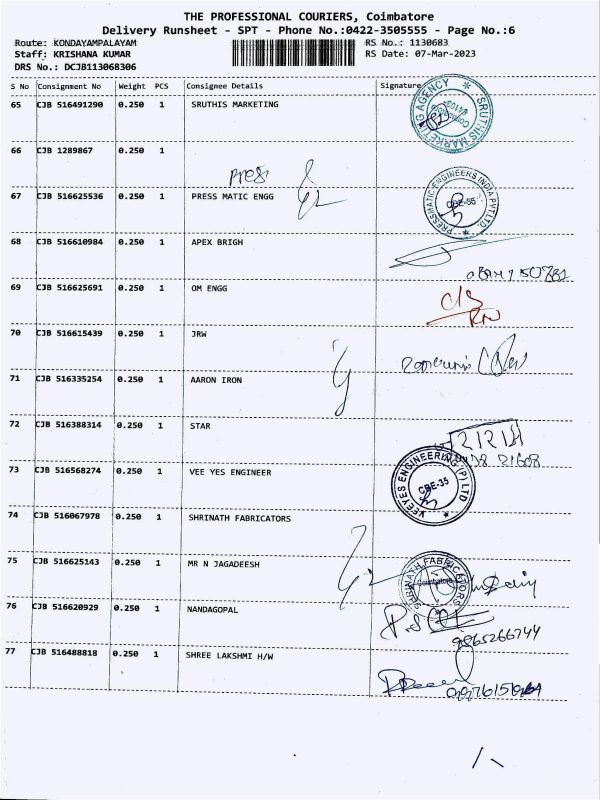 THE PROFESSIONAL COURIERS, Coimbatore
Delivery Runsheet - SPT - Phone No.:0422-3505555 - Page No.:6
Route: KONDAYAMPALAYAM RS No.: 1130683
Staff: KRISHANA KUMAR RS Date: 07-Mar-2023
DRS No.: DCJB113068306
S No Consignment No Weight PCS Consignee Details Signature
65 CJB 516491290 0.250 1 SRUTHIS MARKETING
SRUTHIS MARKETING AGENCY
66 CJB 1289867 0.250 1
Press
67 CJB 516625536 0.250 1 PRESS MATIC ENGG
PRESSMATIC ENGINEERS INDIA PVT LTD.
CBE-35
68 CJB 516610984 0.250 1 APEX BRIGH
69 CJB 516625691 0.250 1 OM ENGG
70 CJB 516615439 0.250 1 JRW
71 CJB 516335254 0.250 1 AARON IRON
72 CJB 516388314 0.250 1 STAR
73 CJB 516568274 0.250 1 VEE YES ENGINEER
VEEYES ENGINEERING (P) LTD
CBE-35
74 CJB 516067978 0.250 1 SHRINATH FABRICATORS
75 CJB 516625143 0.250 1 MR N JAGADEESH
SHRINATH FABRICATORS
Coimbatore
76 CJB 516620929 0.250 1 NANDAGOPAL
9965266744
77 CJB 516488818 0.250 1 SHREE LAKSHMI H/W